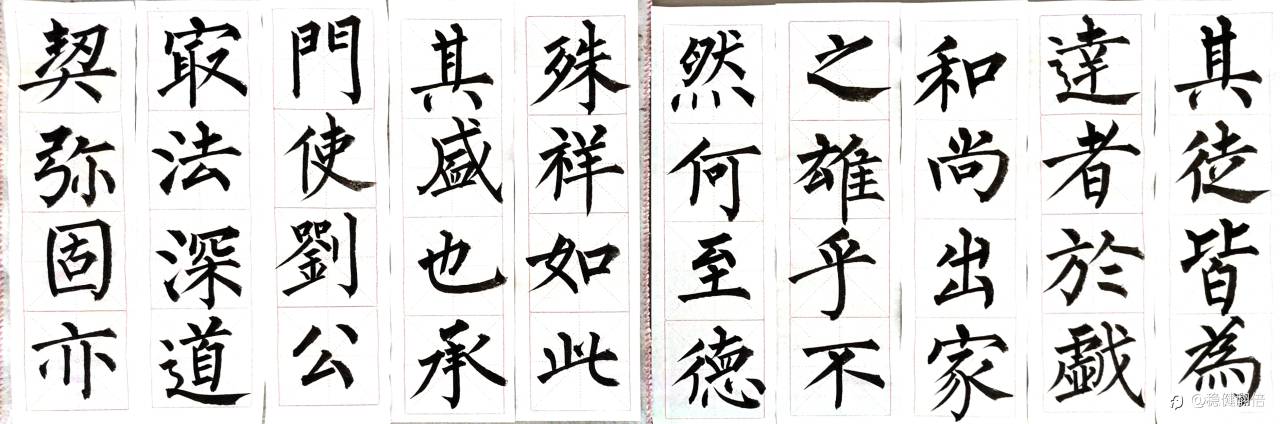 其徒皆為
達者於戯
和尚出家
之雄乎不
然何至德
殊祥如此
其盛也承
門使劉公
㝡法深道
契弥固亦
@稳健翻倍